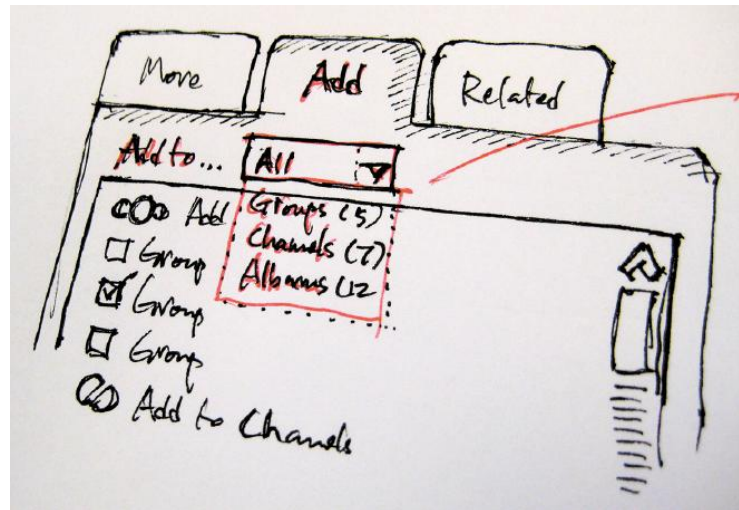 Move Add Related
Add to... All
Groups (5)
Channels (7)
Albums (12
Add
Group
Group
Group
Add to Channels